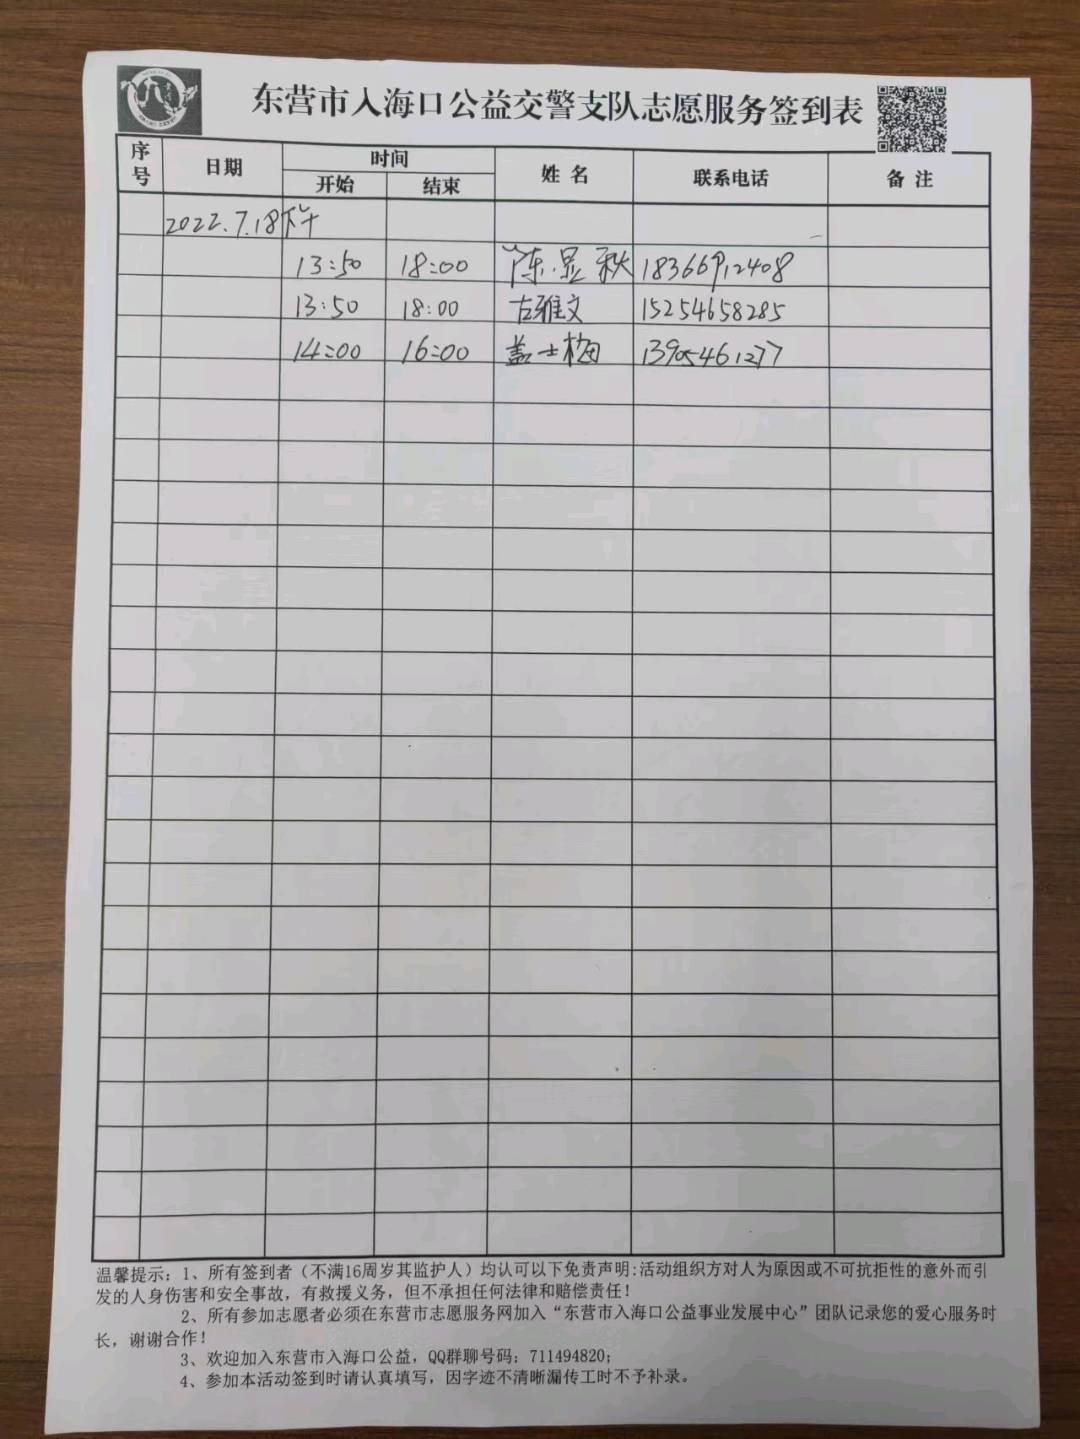 东营市入海口公益交警支队志愿服务签到表
序号 日期 时间 姓名 联系电话 备注
开始 结束
2022.7.18 下午
13:50 18:00 陈显秋 18366912408
13:50 18:00 古雅文 15254658285
14:00 16:00 盖士梅 13905461277
温馨提示：1、所有签到者（不满16周岁其监护人）均认可以下免责声明:活动组织方对人为原因或不可抗拒性的意外而引
发的人身伤害和安全事故，有救援义务，但不承担任何法律和赔偿责任！
2、所有参加志愿者必须在东营市志愿服务网加入“东营市入海口公益事业发展中心”团队记录您的爱心服务时
长，谢谢合作！
3、欢迎加入东营市入海口公益，QQ群聊号码：711494820；
4、参加本活动签到时请认真填写，因字迹不清晰漏传工时不予补录。